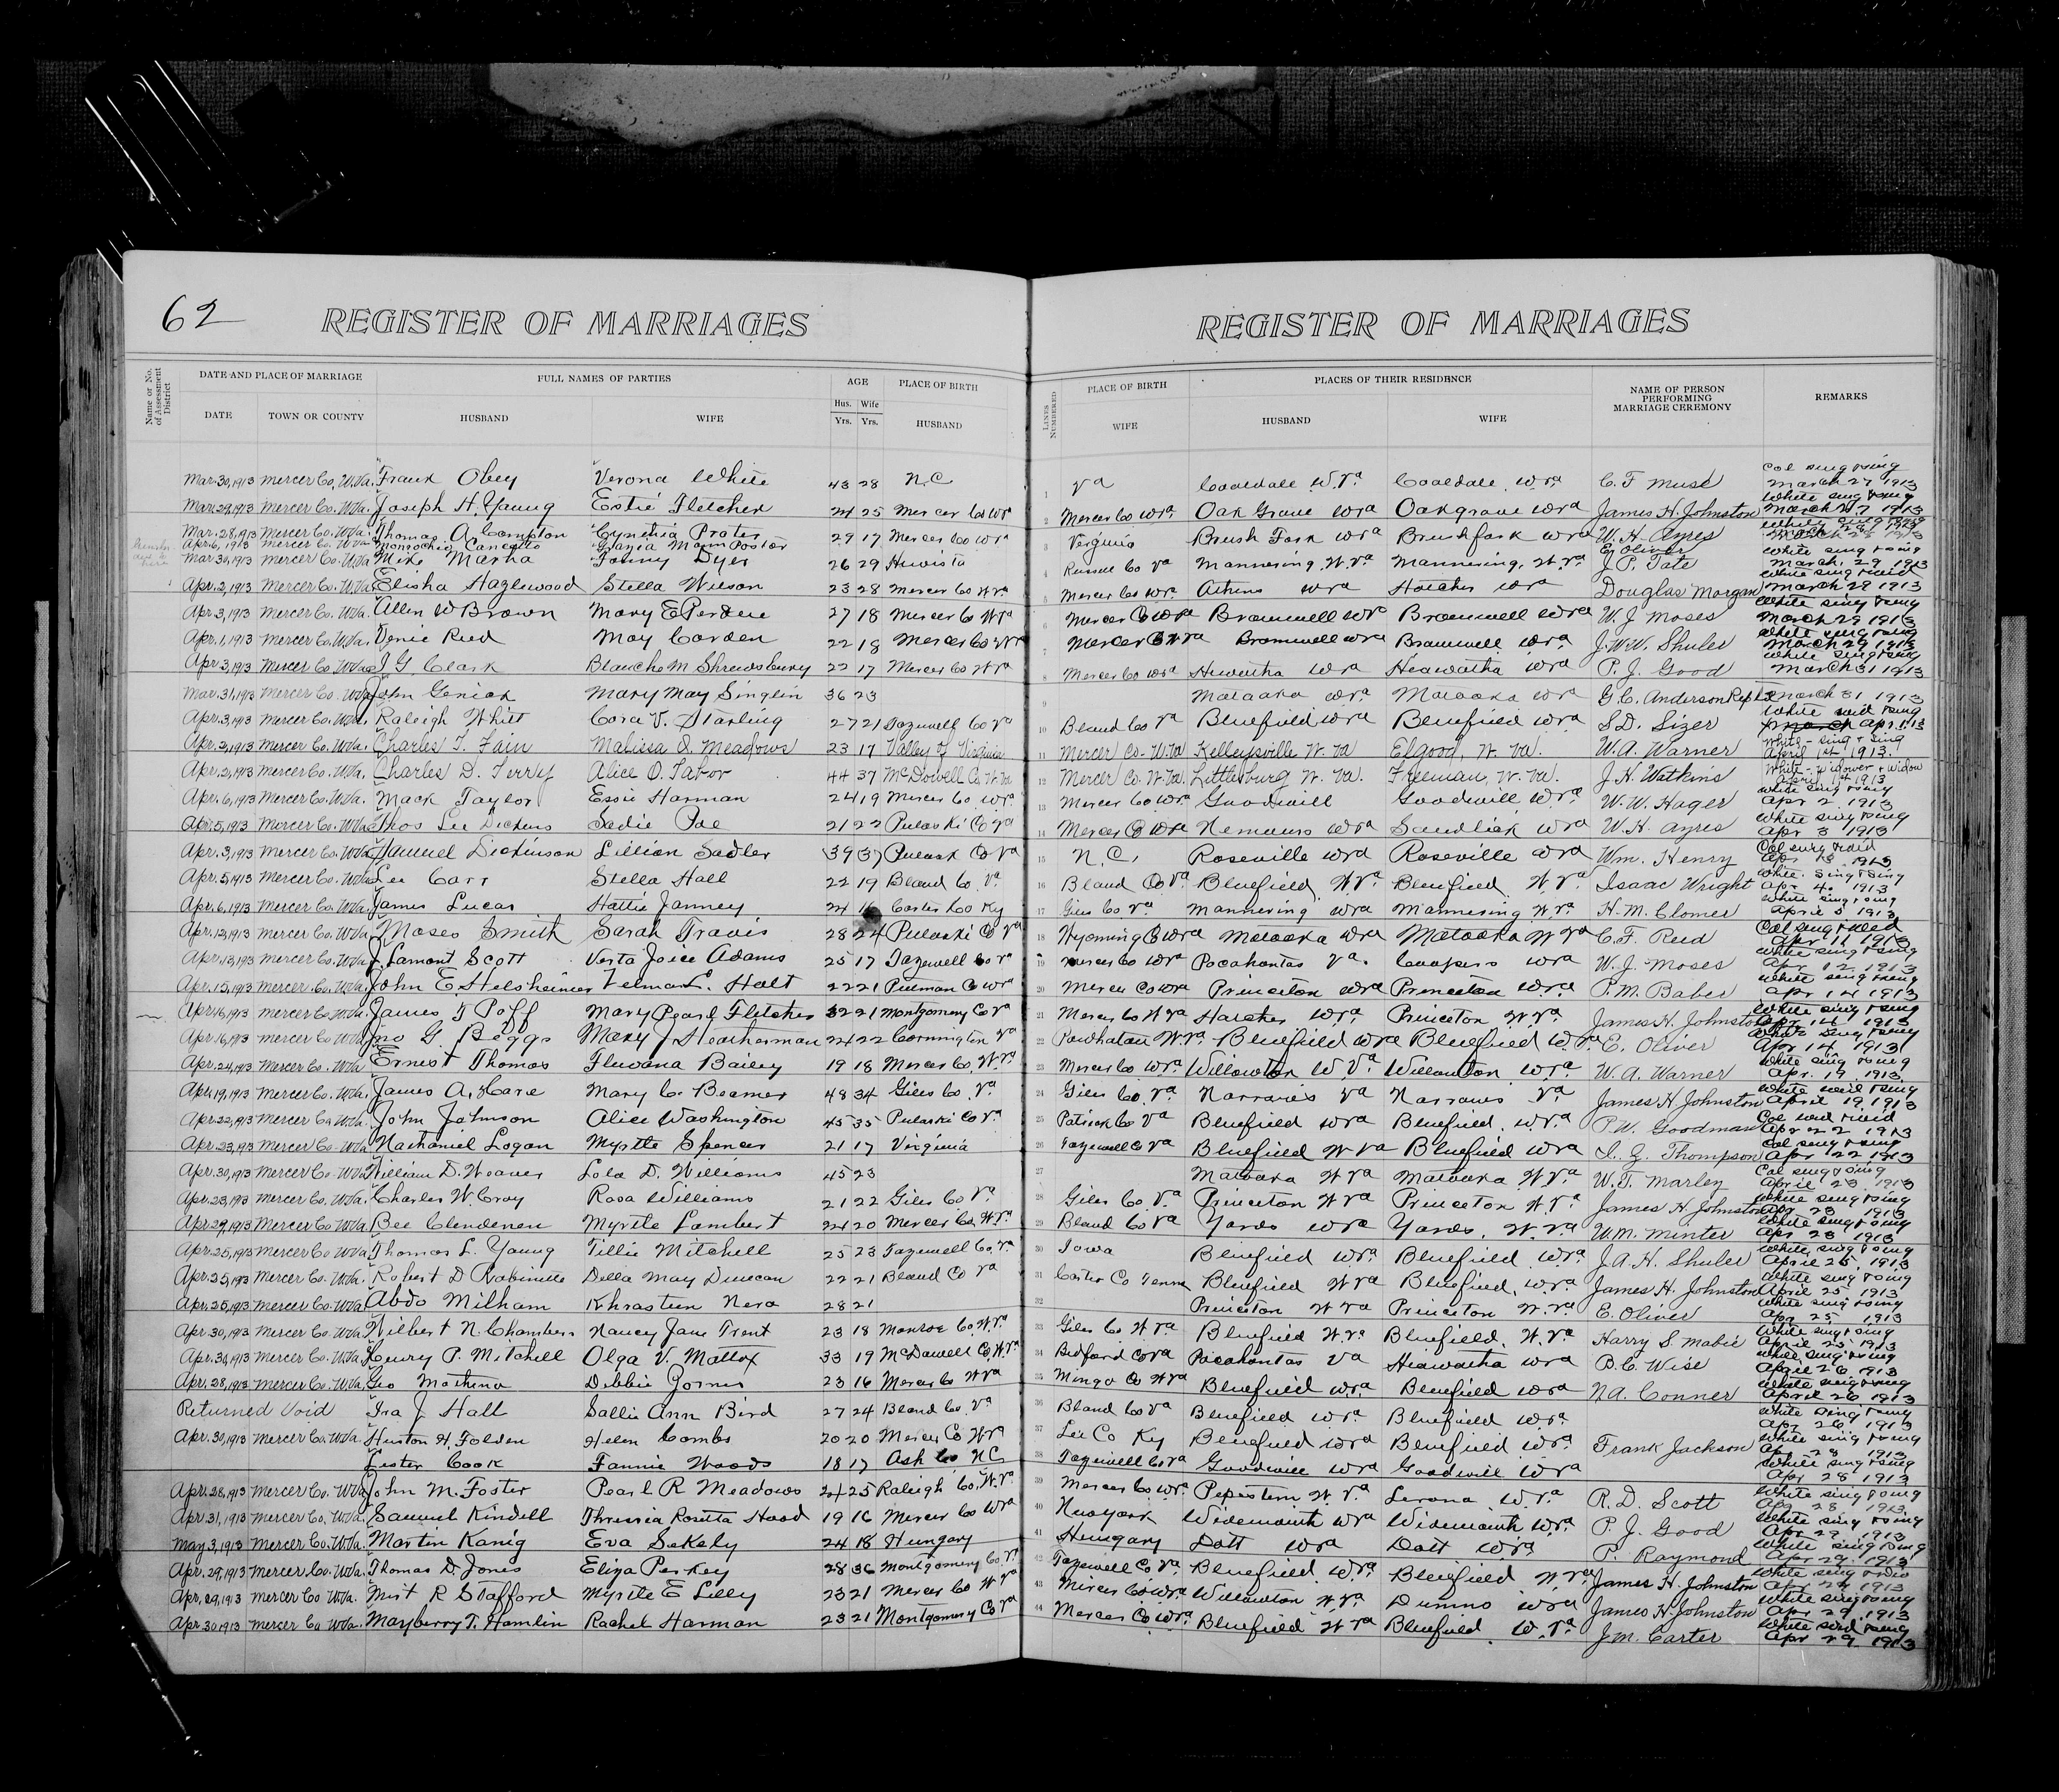 62
REGISTER OF MARRIAGES
REGISTER OF MARRIAGES
Name or No. of Assessment District
DATE AND PLACE OF MARRIAGE FULL NAMES OF PARTIES AGE PLACE OF BIRTH
DATE TOWN OR COUNTY HUSBAND WIFE Hus. Wife Yrs. Yrs. HUSBAND
LINES NUMBERED PLACE OF BIRTH PLACES OF THEIR RESIDENCE NAME OF PERSON PERFORMING MARRIAGE CEREMONY REMARKS
WIFE HUSBAND WIFE
Mar. 30, 1913 Mercer Co. W.Va. Frank Obey Verona White 43 28 N.C. 1 Va Coaldale W.Va Coaldale W Va C. F. Muse Col sing & sing March 27 1913
Mar. 29, 1913 Mercer Co. W.Va. Joseph H. Young Estie Fletcher 24 25 Mercer Co W Va 2 Mercer Co W Va Oak Grove W Va Oakgrove W Va James H. Johnston White sing & sing March 27 1913
Mar. 28, 1913 Mercer Co. W Va Thomas A. Compton Cynthia Prater 29 17 Mercer Co W Va 3 Virginia Brush Fork W Va Brushfork W Va W. H. Ayres
Apr. 6, 1913 Mercer Co. W Va E. Oliver
Mar. 30, 1913 Mercer Co. W.Va Mike Marha Fanny Dyer 26 29 4 Russell Co Va Mannering, W. Va Mannering, W. Va J. P. Tate White sing & sing March 29 1913
Apr. 2, 1913 Mercer Co. W.Va. Elisha Hazlewood Stella Wilson 23 28 Mercer Co W Va 5 Mercer Co W Va Athens W Va Hatcher W Va Douglas Morgan March 29 1913
Apr. 3, 1913 Mercer Co. W Va. Allen W Brown Mary E Perdue 27 18 Mercer Co W Va 6 Mercer Co W Va Bramwell W Va Bramwell W Va W. J. Moses White sing & sing March 29 1913
Apr. 1, 1913 Mercer Co. W.Va. Vernie Reed May Carden 22 18 Mercer Co W Va 7 Mercer Co W Va Bramwell W Va Bramwell W Va J. W. W. Shuler White sing & sing March 29 1913
Apr. 3, 1913 Mercer Co. W Va J G Clark Blanche M Shrewsbury 22 17 Mercer Co W Va 8 Mercer Co W Va Hiwatha W Va Heawatha W Va P. J. Good White sing & sing March 31 1913
Mar. 31, 1913 Mercer Co. W.Va John Geniak Mary May Singlin 36 23 9 Matoaka W Va Matoaka W Va G. C. Anderson March 31 1913
Apr. 3, 1913 Mercer Co. W Va. Raleigh Whitt Cora V. Starling 27 21 Tazewell Co Va 10 Bland Co Va Bluefield W Va Bluefield W Va S. D. Sizer White wid & sing Apr 1 13
Apr. 2, 1913 Mercer Co. W Va. Charles T. Fain Malissa O. Meadows 23 17 Valley of Virginia 11 Mercer Co. W. Va Kelleysville W. Va Elgood, W. Va. W. A. Warner White - sing & sing April 1st 1913.
Apr. 2, 1913 Mercer Co. W Va. Charles D. Terry Alice O. Tabor 44 37 McDowell Co W Va 12 Mercer Co. W. Va. Littlesburg W. Va. Freeman, W. Va. J. H. Watkins White - widower & widow April 1st 1913
Apr. 6, 1913 Mercer Co. W Va. Mack Taylor Essie Harman 24 19 Mercer Co. W Va 13 Mercer Co W Va Goodwill Goodwill W Va. W. W. Hager White sing & sing Apr 2 1913
Apr. 5, 1913 Mercer Co. W Va Thos Lee Dickens Sadie Poe 21 22 Pulaski Co Va 14 Mercer Co W Va Nemours W Va Sandlick W Va W. H. Ayres White sing & sing Apr 3 1913
Apr. 3, 1913 Mercer Co. W Va Samuel Dickinson Lillian Sadler 39 37 Pulaski Co Va 15 N. C. Roseville W Va Roseville W Va Wm. Henry Col sing & wid Apr 3 1913
Apr. 5, 1913 Mercer Co. W Va Lee Carr Stella Hall 22 19 Bland Co Va 16 Bland Co Va Bluefield W Va. Bluefield, W. Va. Isaac Wright White sing & sing Apr 4. 1913
Apr. 6, 1913 Mercer Co. W Va. James Lucas Hattie Janney 24 16 Carter Co Ky 17 Giles Co, Va Mannering W Va Mannering W. Va H. M. Clomer White sing & sing April 5 1913
Apr. 13, 1913 Mercer Co. W Va. Moses Smith Sarah Travis 28 24 Pulaski Co Va 18 Wyoming Co W Va Matoaka W Va Matoaka W Va C. F. Reed Col sing & wid Apr 11 1913
Apr. 13, 1913 Mercer Co. W Va. J. Lamont Scott Verta Joice Adams 25 17 Tazewell Co Va 19 Mercer Co W Va Pocahontas Va. Coopers W Va W. J. Moses White sing & sing Apr 12 1913
Apr. 15, 1913 Mercer Co. W.Va. John E. Helsheimer Velma L. Holt 22 21 Putman Co W Va 20 Mercer Co W Va Princeton W Va Princeton W Va. P. M. Baber White sing & sing Apr 14 1913
Apr. 16, 1913 Mercer Co W.Va. James T Poff Mary Pearl Fletcher 32 21 Montgomery Co Va 21 Mercer Co W Va Hatcher W Va. Princeton W Va. James H. Johnston White sing & sing Apr 14 1913
Apr. 16, 1913 Mercer Co W Va Jno G. Beggs Mary J. Heatherman 24 22 Covington Va 22 Powhatan W. Va. Bluefield W Va Bluefield W. Va. E. Oliver White sing & sing Apr 14 1913
Apr. 24, 1913 Mercer Co. W Va Ernest Thomas Fluvana Bailey 19 18 Mercer Co. W. Va 23 Mercer Co. W Va Willowton W Va Willowton W. Va. W. A. Warner White sing & sing Apr. 19 1913
Apr. 19, 1913 Mercer Co. W Va. James A. Hare Mary C. Beamer 48 34 Giles Co. Va 24 Giles Co, Va Narrows Va Narrows Va James H. Johnston White wid & sing April 19 1913
Apr. 22, 1913 Mercer Co W Va. John Johnson Alice Washington 45 35 Pulaski Co Va. 25 Patrick Co Va Bluefield W Va. Bluefield, W. Va. P. W. Goodman Col wid & wid Apr 22 1913
Apr. 23, 1913 Mercer Co. W Va. Nathaniel Logan Myrtle Spencer 21 17 Virginia 26 Tazewell Co Va Bluefield W Va Bluefield W Va S. G. Thompson Col sing & sing Apr 22 1913
Apr. 30, 1913 Mercer Co. W Va William D. Weaver Lola D. Williams 45 23 27 Matoaka W Va Matoaka W. Va. W. T. Marley Col sing & sing April 23 1913
Apr. 23, 1913 Mercer Co. W.Va. Charles W. Croy Rosa Williams 21 22 Giles Co Va. 28 Giles Co. Va. Princeton W Va Princeton W. Va. James H. Johnston White sing & sing Apr 23 1913
Apr. 27, 1913 Mercer Co W Va. Bee Clendenen Myrtle Lambert 24 20 Mercer Co, W. Va 29 Bland Co Va Yards W Va Yards, W. Va W. M. Minter White sing & sing Apr 23 1913
Apr. 25, 1913 Mercer Co W Va. Thomas L. Young Tillie Mitchell 25 23 Tazewell Co. Va 30 Iowa Bluefield W Va. Bluefield W. Va. J. A. H. Shuler White sing & sing April 25 1913
Apr. 25, 1913 Mercer Co. W Va. Robert D Robinette Della May Duncan 22 21 Bland Co Va 31 Carter Co Tenn Bluefield W Va Bluefield, W. Va. James H. Johnston White sing & sing April 25 1913
Apr. 25, 1913 Mercer Co. W.Va. Abdo Milham Khrasteen Nera 28 21 32 Princeton W Va Princeton W. Va. E. Oliver White sing & sing Apr 25 1913
Apr. 30, 1913 Mercer Co. W.Va. Wilbert N. Chambers Nancy Jane Trent 23 18 Monroe Co. W. Va. 33 Giles Co W Va Bluefield W. Va. Bluefield, W. Va Harry S. Mabie White sing & sing April 25 1913
Apr. 30, 1913 Mercer Co. W.Va. Henry P. Mitchell Olga V. Mattox 33 19 McDowell Co, W. Va 34 Bedford Co Va Pocahontas Va Heawatha W Va B. C. Wise White sing & sing April 26 1913
Apr. 28, 1913 Mercer Co. W.Va. Geo Mathena Debbie 23 16 Mercer Co W Va 35 Mingo Co W Va Bluefield W Va. Bluefield W Va N. A. Conner White sing & sing April 26 1913
Returned Void Ira J Hall Sallie Ann Bird 27 24 Bland Co. Va 36 Bland Co Va Bluefield W Va. Bluefield W Va. White sing & sing Apr 26 1913
Apr. 30, 1913 Mercer Co. W.Va. Huston H. Folden Helen Combs 20 20 Mercer Co W Va 37 Lee Co Ky Bluefield W Va Bluefield W Va. Frank Jackson White sing & sing Apr 28 1913
Lester Cook Fannie Woods 18 17 Ash Co N C 38 Tazewell Co Va Goodwill W Va Goodwill W Va White sing & sing Apr 28 1913
Apr. 28, 1913 Mercer Co. W Va John M. Foster Pearl R Meadows 24 25 Raleigh Co. W. Va 39 Mercer Co W Va. Pepestem W. Va. Lerona W. Va R. D. Scott White sing & sing Apr 28 1913
Apr. 31, 1913 Mercer Co. W Va. Samuel Kindell Thressia Rosetta Hood 19 16 Mercer Co W Va 40 Newyork Widemouth W Va Widemouth W Va. P. J. Good White sing & sing Apr 29 1913
May 3, 1913 Mercer Co. W Va. Martin Kanig Eva Sekely 24 18 Hungary 41 Hungary Dott W Va Dott W Va. P. Raymond White sing & sing Apr 29 1913
Apr. 29, 1913 Mercer Co. W Va. Thomas D. Jones Eliza Perkey 28 36 Montgomery Co. Va 42 Tazewell Co. Va Bluefield W. Va Bluefield W. Va James H. Johnston Apr 29 1913
Apr. 29, 1913 Mercer Co W Va. R Stafford Myrtle E Lilly 23 21 Mercer Co W Va 43 Mercer Co W Va. Willowton W. Va. W Va James H. Johnston White sing & sing Apr 29 1913
Apr. 30, 1913 Mercer Co W Va. Mayberry T. Hamlin Rachel Harman 23 21 Montgomery Co Va 44 Mercer Co W Va. Bluefield W Va Bluefield W. Va. J. M. Carter White wid & sing Apr 29 1913